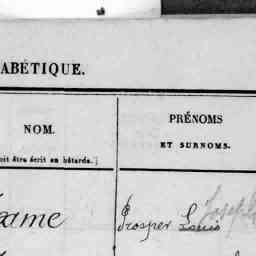 ABÉTIQUE.
NOM.
oit être écrit en bâtarde.]
PRÉNOMS
ET SURNOMS.
Joseph
ame
Prosper Louis